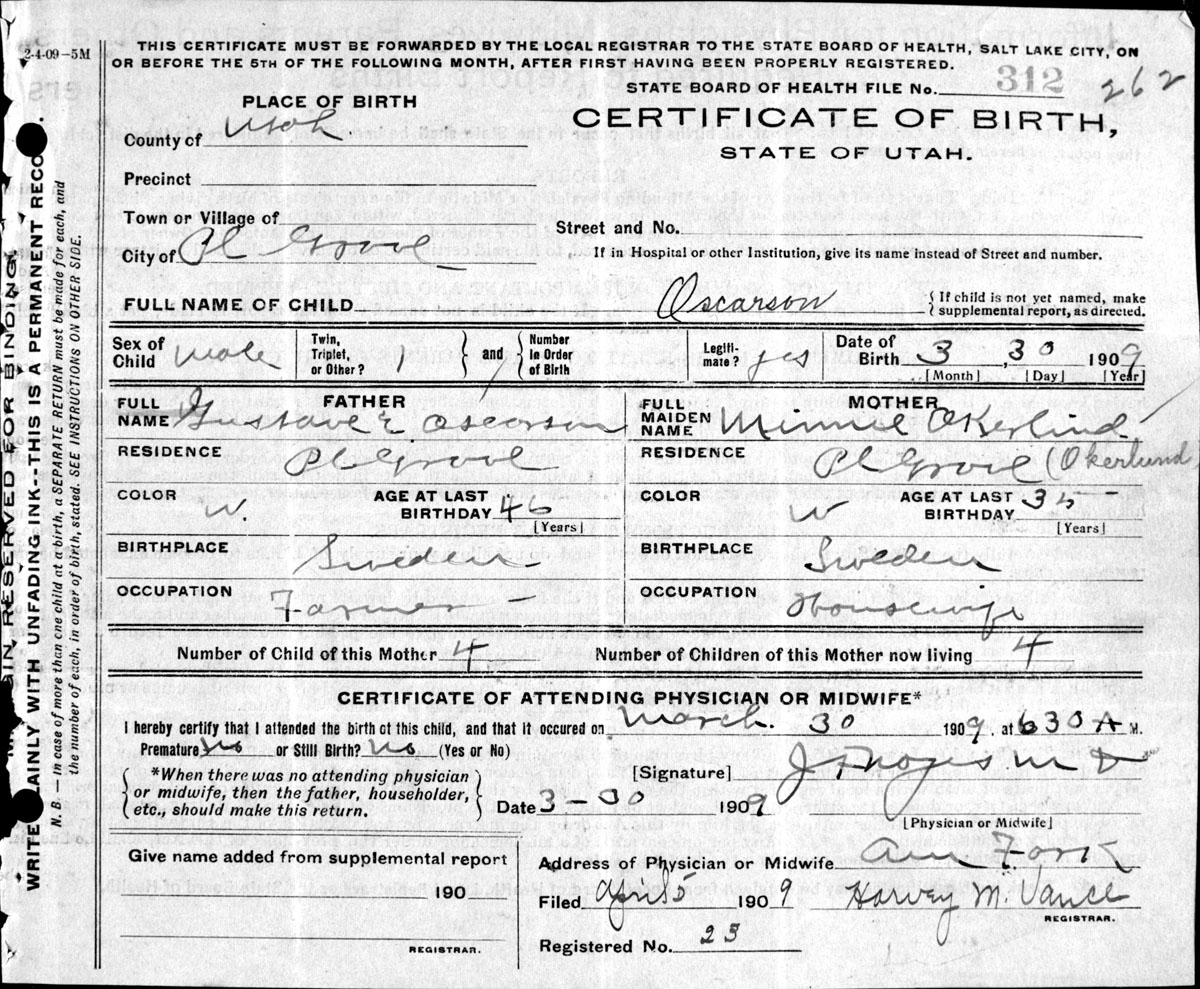 2-4-09-5M
THIS CERTIFICATE MUST BE FORWARDED BY THE LOCAL REGISTRAR TO THE STATE BOARD OF HEALTH, SALT LAKE CITY, ON
OR BEFORE THE 5TH OF THE FOLLOWING MONTH, AFTER FIRST HAVING BEEN PROPERLY REGISTERED.
STATE BOARD OF HEALTH FILE No. 312 262
PLACE OF BIRTH
County of Utah
CERTIFICATE OF BIRTH,
STATE OF UTAH.
Precinct
Town or Village of
City of Pl Grove
Street and No.
If in Hospital or other Institution, give its name instead of Street and number.
FULL NAME OF CHILD Oscarson { If child is not yet named, make
supplemental report, as directed.
Sex of Child Male Twin, Triplet, or Other? 1 } and { Number in Order of Birth Legiti-mate? yes Date of Birth 3, 30 1909
[Month] [Day] [Year]
FATHER
FULL NAME Gustave E. Oscarson
RESIDENCE Pl Grove
COLOR W. AGE AT LAST BIRTHDAY 46
[Years]
BIRTHPLACE Sweden
OCCUPATION Farmer
MOTHER
FULL MAIDEN NAME Minnie Okerlind
RESIDENCE Pl Grove (Okerlund
COLOR W AGE AT LAST BIRTHDAY 35
[Years]
BIRTHPLACE Sweden
OCCUPATION Housewife
Number of Child of this Mother 4 Number of Children of this Mother now living 4
CERTIFICATE OF ATTENDING PHYSICIAN OR MIDWIFE*
I hereby certify that I attended the birth of this child, and that it occured on March 30 1909, at 630 A M.
Premature No or Still Birth? No (Yes or No)
{ *When there was no attending physician
or midwife, then the father, householder,
etc., should make this return. }
[Signature] J F Noyes M D
Date 3-30 1909
[Physician or Midwife]
Give name added from supplemental report
190
REGISTRAR.
Address of Physician or Midwife Am Fork
Filed April 5 1909 Harvey M. Vance
REGISTRAR.
Registered No. 23
AIN RESERVED FOR BINDING
WRITE LAINLY WITH UNFADING INK--THIS IS A PERMANENT RECO.
N. B. — In case of more than one child at birth, a SEPARATE RETURN must be made for each, and
the number of each, in order of birth, stated. SEE INSTRUCTIONS ON OTHER SIDE.